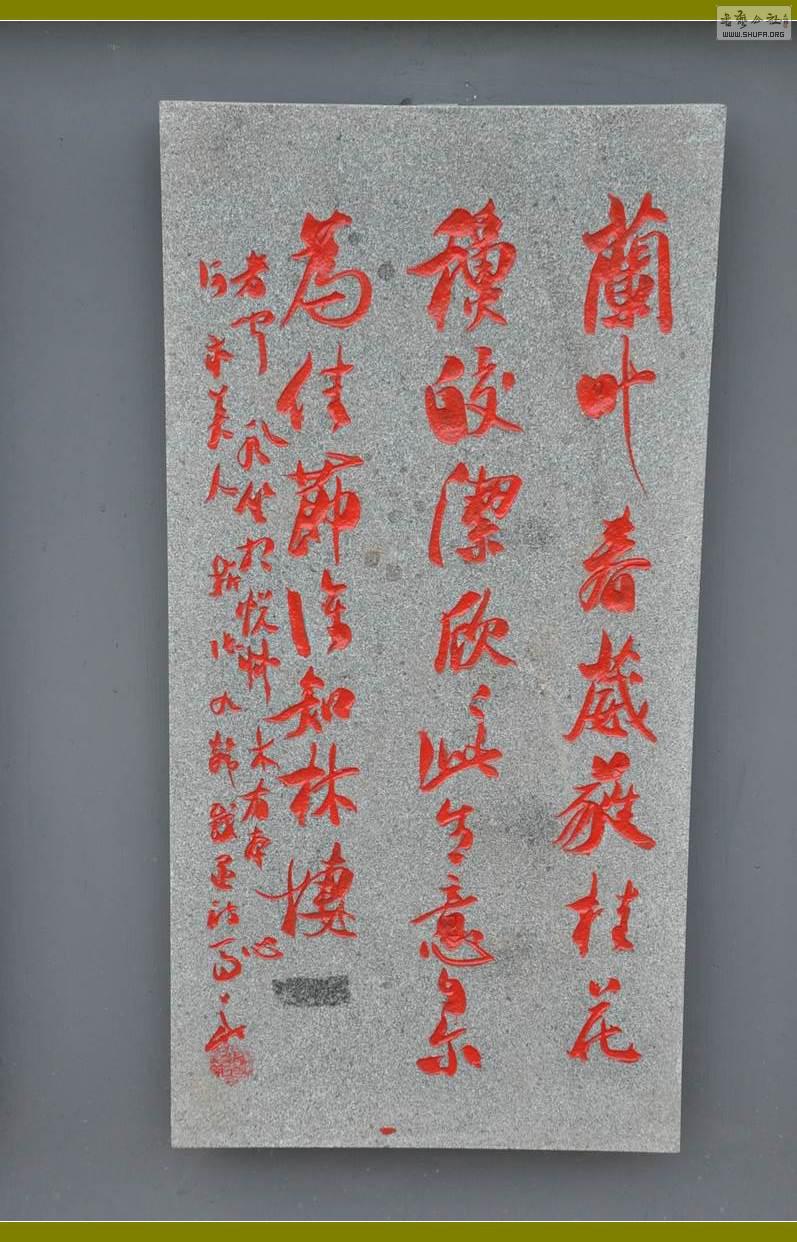 書藝公社
WWW.SHUFA.ORG
蘭叶春葳蕤桂花
穐皎潔欣〻此生意自尔
為佳節誰知林棲
者聞風坐相悦艸木有本心
何求美人折張九齡感遇詩